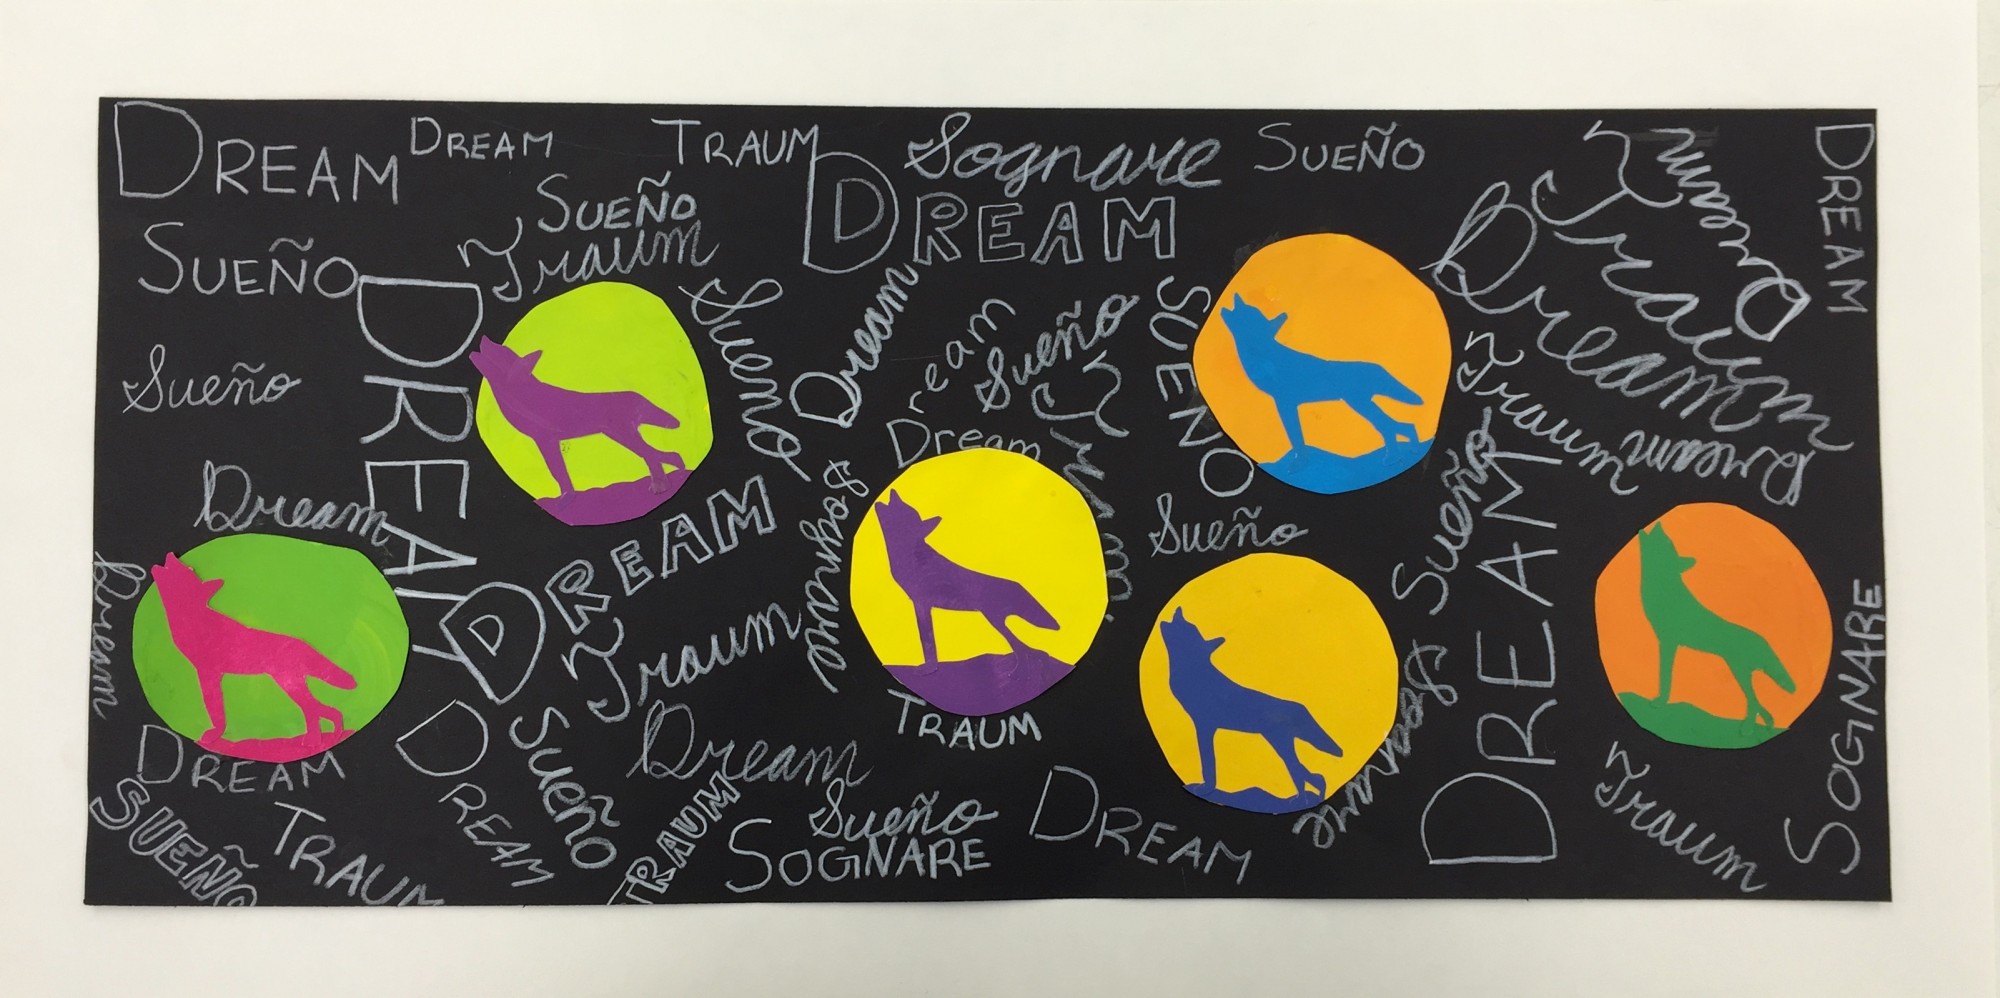 DREAM
DREAM
TRAUM
Sognare
SUEÑO
Traum
Dream
DREAM
SUEÑO
Traum
DREAM
Traum
SUEÑO
DREAM
Sueño
Dream
Dream
Sueño
SUEÑO
Dream
Traum
Sueño
Traum
Dream
Dream
Dream
DREAM
Sognare
Sueño
Sueño
DREAM
Dream
DREAM
Traum
Sognare
SOGNARE
TRAUM
DREAM
DREAM
Sueño
Dream
Traum
SUEÑO
TRAUM
TRAUM
Sueño
SOGNARE
DREAM